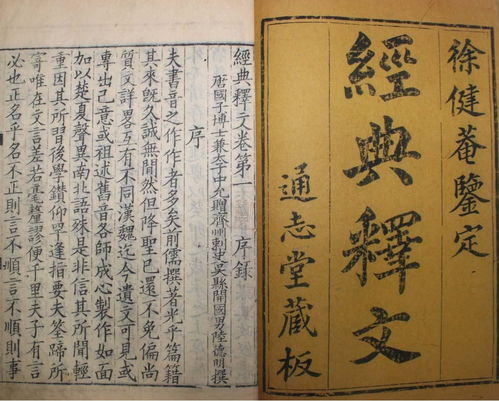 徐健菴鑒定
經典釋文
通志堂藏板
經典釋文卷第一 序錄
唐國子博士兼太子中允贈齊州刺史吳縣開國男陸德明撰
序
夫書音之作作者多矣前儒撰著光乎篇籍
其來既久誠無閒然但降聖已還不免偏尚
質文詳畧互有不同漢魏迄今遺文可見或
專出己意或祖述舊音各師成心製作如面
加以楚夏聲異南北語殊是非信其所聞輕
重因其所習後學鑽仰罕逢指要夫筌蹄所
寄唯在文言差若毫釐謬便千里夫子有言
必也正名乎名不正則言不順言不順則事